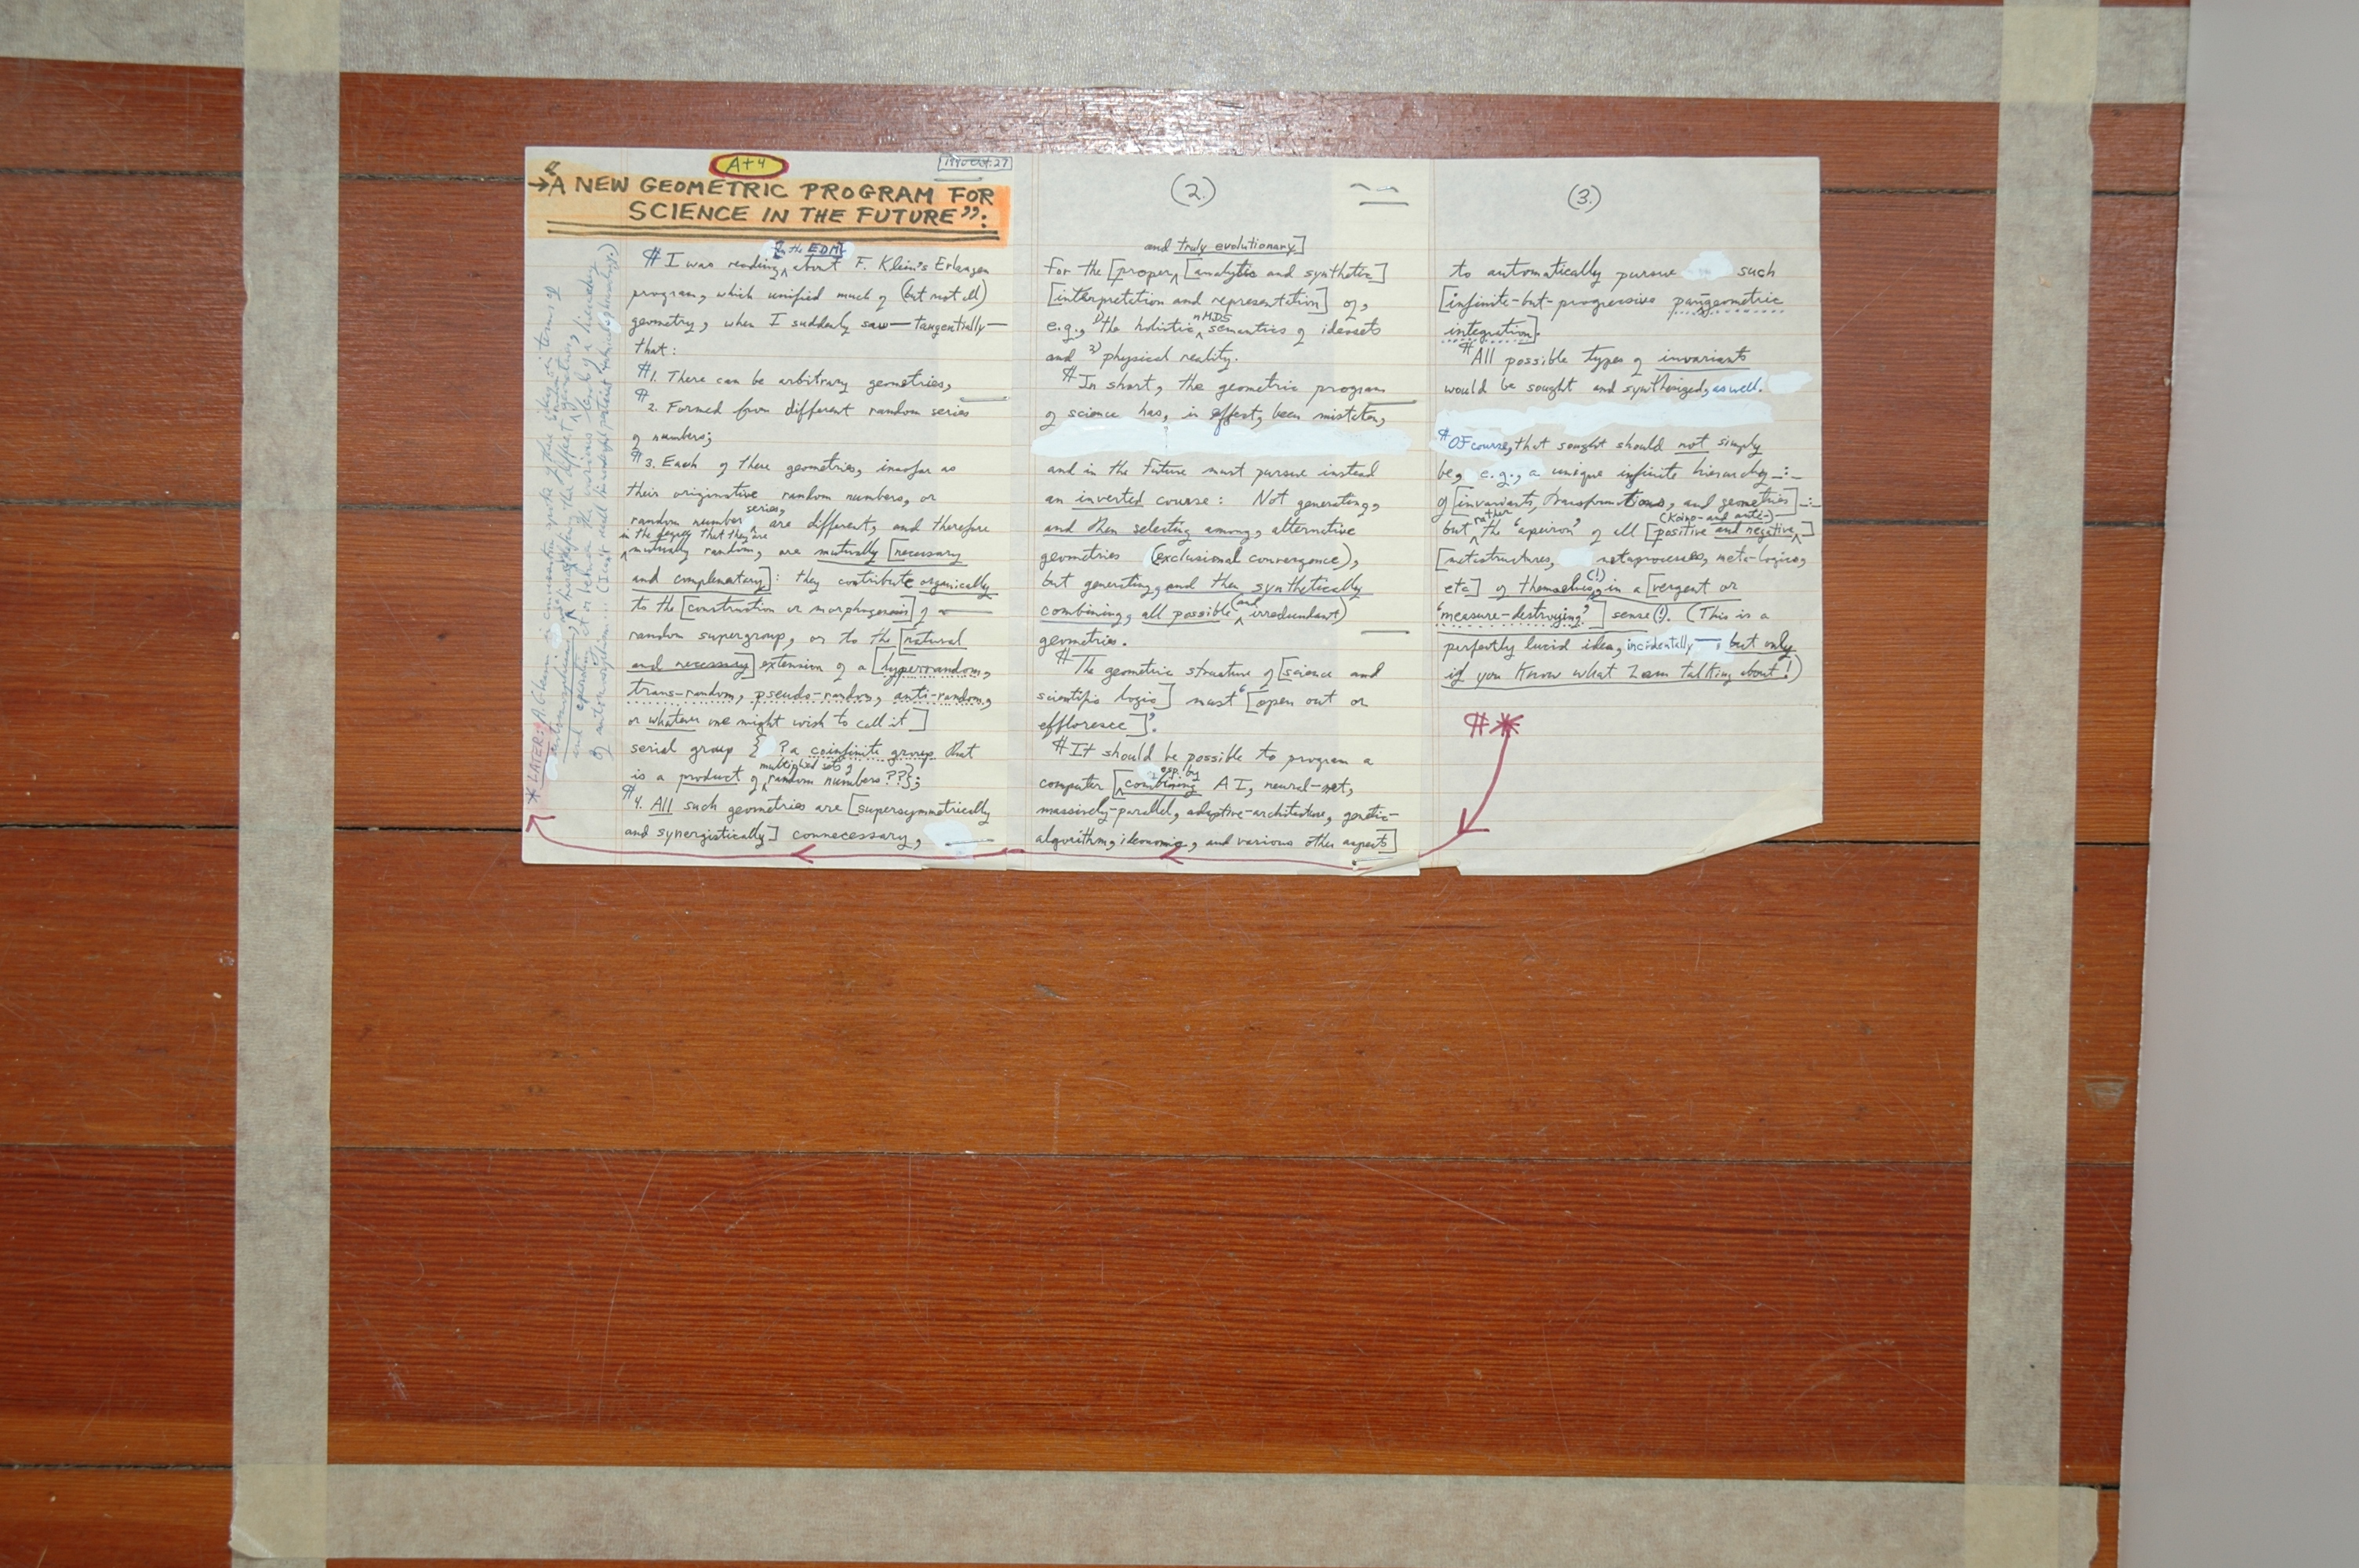 A+4
1990 Oct. 27
→ "A NEW GEOMETRIC PROGRAM FOR
SCIENCE IN THE FUTURE":
¶ I was reading [in the EDM] about F. Klein's Erlangen
program, which unified much of (but not all)
geometry, when I suddenly saw — tangentially —
that:
¶1. There can be arbitrary geometries,
¶2. Formed from different random series
of numbers;
¶3. Each of these geometries, insofar as
their originative random numbers, or
random number series, are different, and therefore
in the degree that they are
mutually random, are mutually [necessary
and complementary]: they contribute organically
to the [construction or morphogenesis] of a
random supergroup, or to the [natural
and necessary] extension of a [hyperrandom,
trans-random, pseudo-random, anti-random,
or whatever one might wish to call it]
serial group {? a coinfinite group that
is a product of multiplied sets of random numbers??};
¶4. All such geometries are [supersymmetrically
and synergistically] connecessary,
* LATER: A. Chem.
(2.)
and truly evolutionary]
for the [proper [analytic and synthetic]
[interpretation and representation] of,
e.g., 1) the holistic nMDS semantics of ideosets
and 2) physical reality.
¶ In short, the geometric program
of science has, in effect, been mistaken,
and in the future must pursue instead
an inverted course: Not generating,
and then selecting among, alternative
geometries (exclusional convergence),
but generating, and then synthetically
combining, all possible (and irredundant)
geometries.
¶ The geometric structure of [science and
scientific logic] must '[open out or
effloresce]'.
¶ It should be possible to program a
computer [esp. by combining AI, neural-net,
massively-parallel, adaptive-architecture, genetic-
algorithm, ideonomic, and various other aspects]
(3.)
to automatically pursue such
[infinite-but-progressive pangeometric
integration].
¶ All possible types of invariants
would be sought and synthesized, as well.
¶ Of course, that sought should not simply
be, e.g., a unique infinite hierarchy
of [invariants, transformations, and geometries]
but rather the "apeiron" of all [positive and negative (Koino- and anti-)]
[metastructures, metaprocesses, meta-logics,
etc] of themselves (!), in a [vergent or
'measure-destroying'] sense (!). (This is a
perfectly lucid idea, incidentally —, but only
if you know what I am talking about!)
¶ *